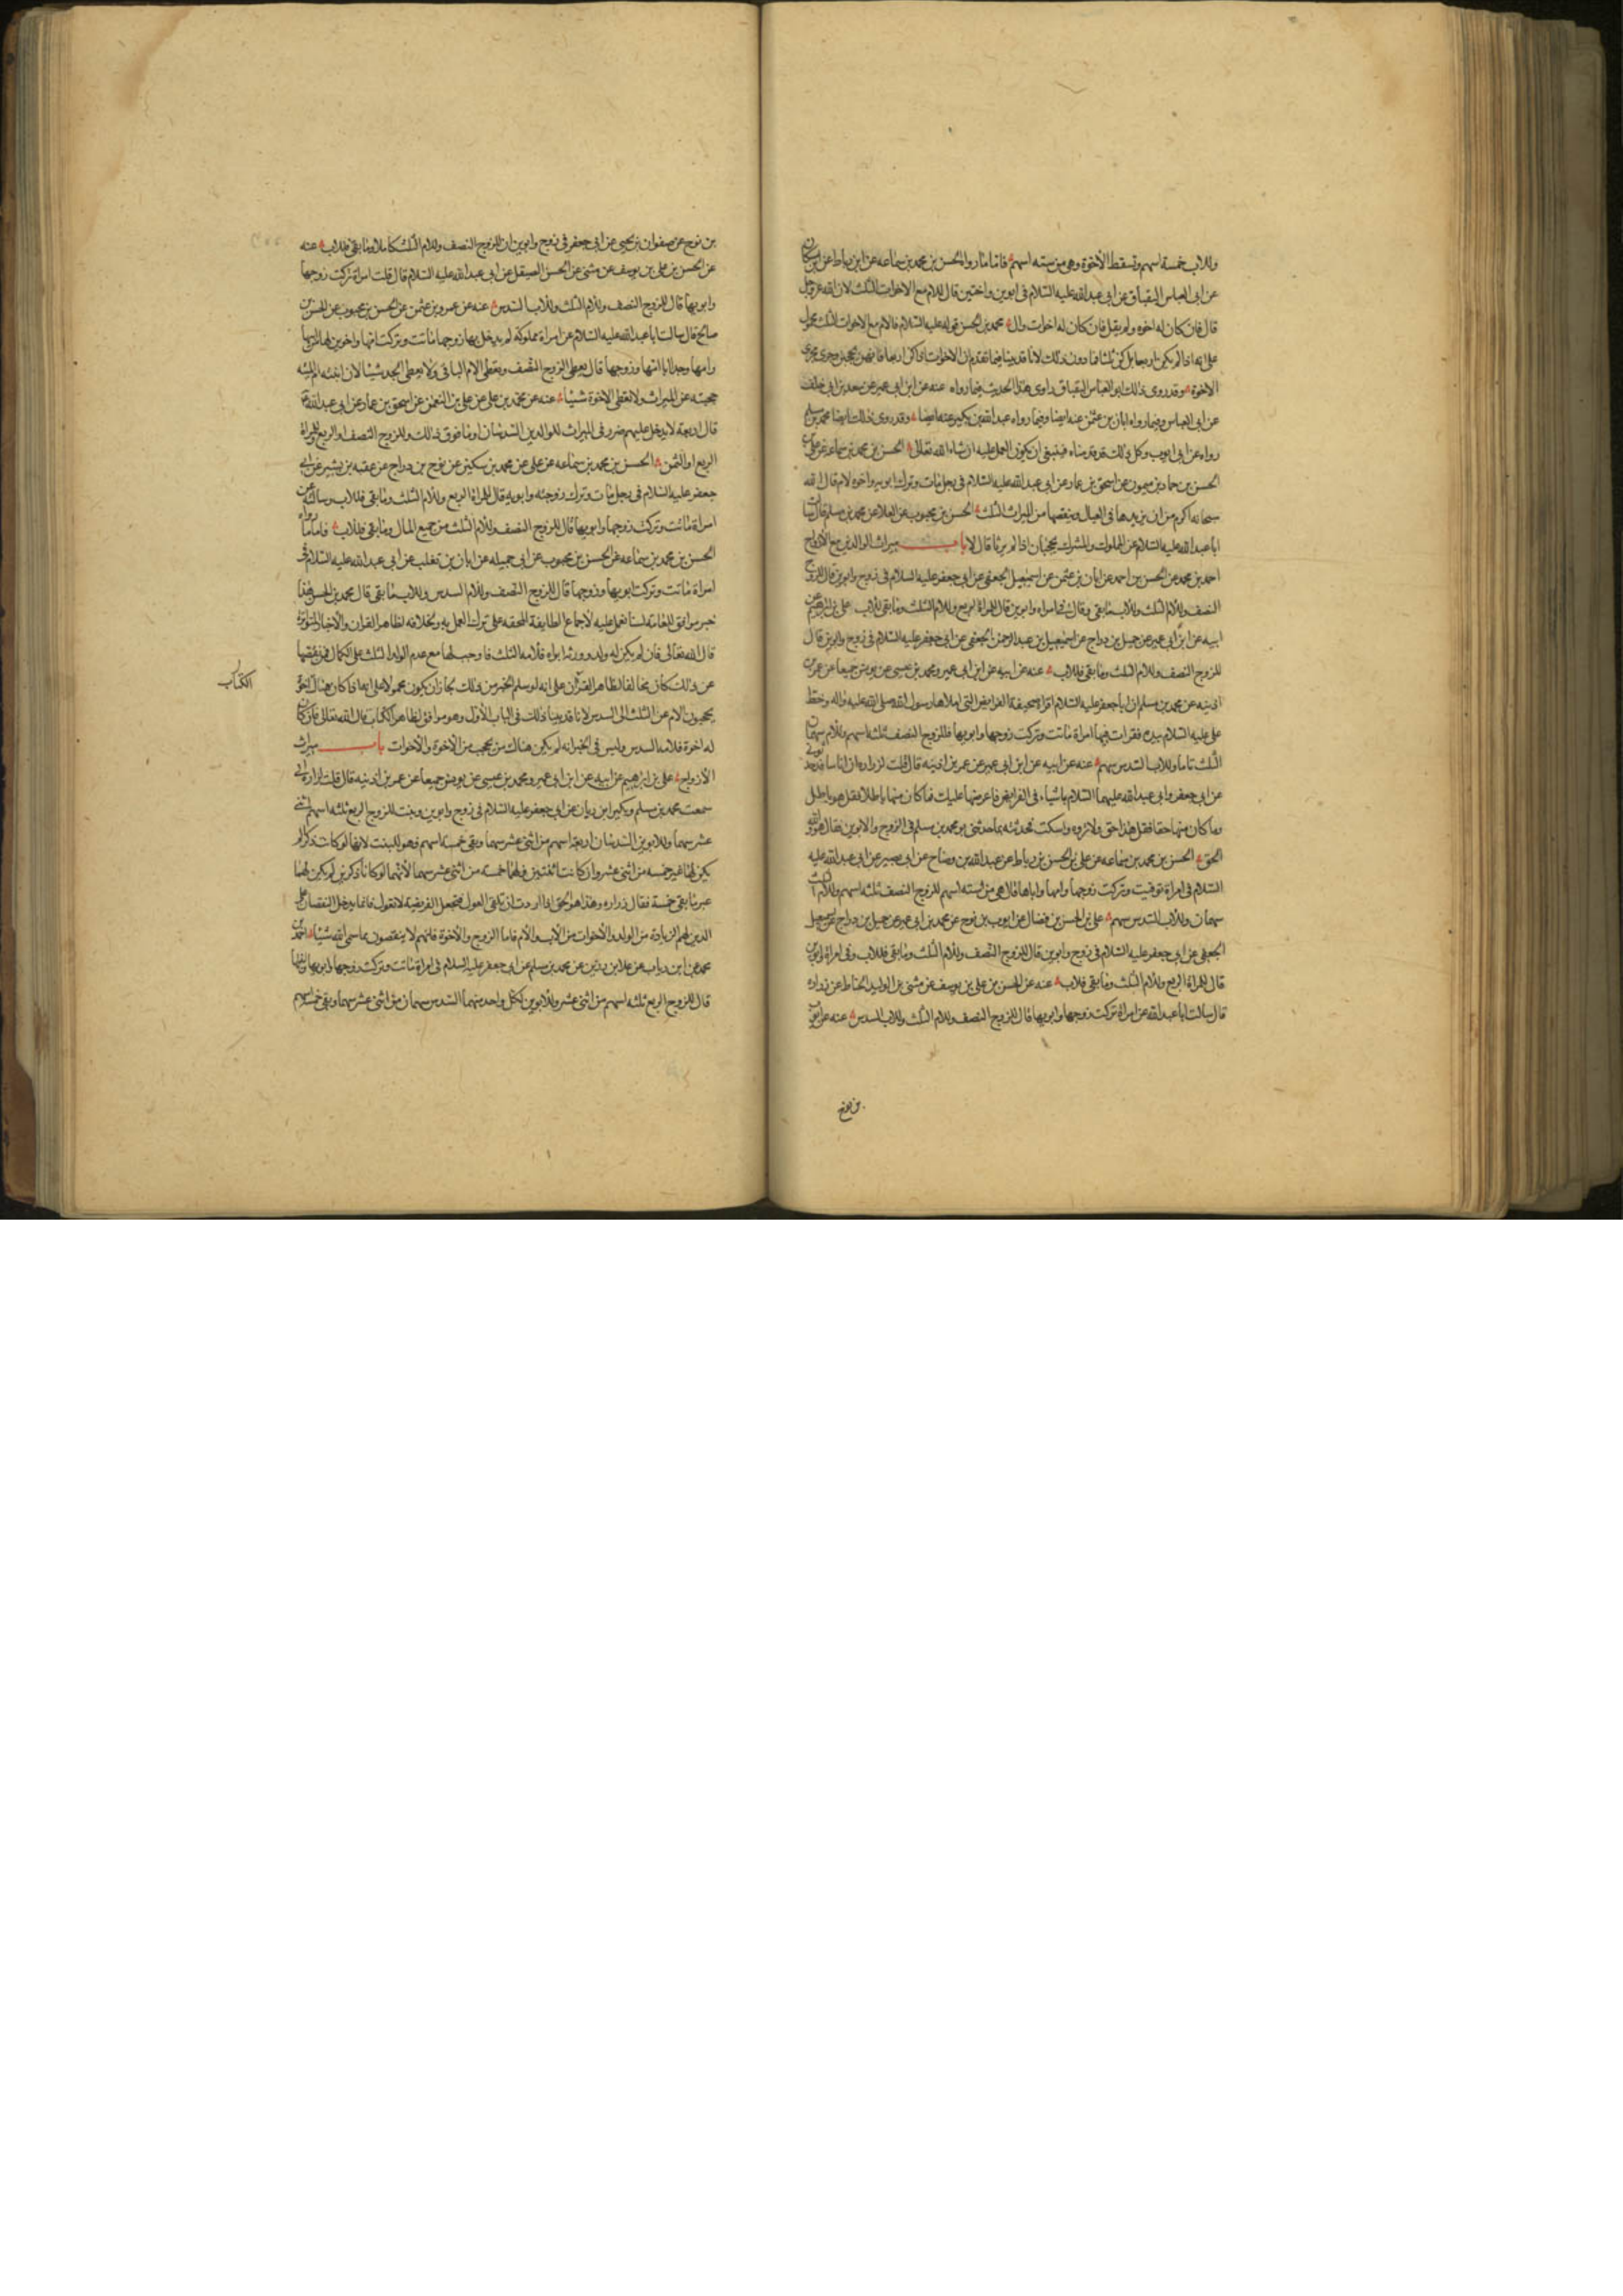 وللاب خمسة اسهم وتسقط الأخوة وهي من ستة اسهم فاما ما رواه الحسن بن محمد بن سماعه عن ابن رباط عن ابن مسكان
عن ابي العباس البقباق عن ابي عبد الله عليه السلام في ابوين واختين قال للام مع الاخوات الثلث لان الله عز وجل
قال فان كان له اخوة ولم يقل فان كان له اخوات قال محمد بن الحسن قوله عليه السلام فللام مع الاخوات الثلث محمول
على انه اذا لم يكن اربعا بل كن ثلثا فما دون ذلك لانا قد بينا فيما تقدم ان الاخوات اذا كن اربعا فانهن يحجبن وجرى مجرى
الاخوة وقد روى ذلك ابو العباس البقباق راوى هذا الحديث فيما رواه عنه عن ابن ابي عمير عن سعد بن ابي خلف
عن ابي العباس وفيما رواه ابان بن عثمن عنه ايضا وفيما رواه عبد الله بن بكير عنه ايضا وقد روى ذلك ايضا محمد بن مسلم
رواه عن ابي ايوب وكل ذلك قد قدمناه فينبغي ان يكون العمل عليه ان شاء الله تعالى الحسن بن محمد بن سماعه عن علي بن
الحسن بن حماد بن ميمون عن اسحق بن عمار عن ابي عبد الله عليه السلام في رجل مات وترك ابويه واخوة لام قال الله
سبحانه اكرم من ان يزيدها في العيال وينقصها من الميراث الثلث الحسن بن محبوب عن العلا عن محمد بن مسلم قال سالت
ابا عبد الله عليه السلام عن المملوك والمشرك يحجبان اذا لم يرثا قال لا باب ميراث الوالدين مع الازواج
احمد بن محمد عن الحسن بن احمد عن ابان بن عثمن عن اسمعيل الجعفي عن ابي جعفر عليه السلام في زوج وابوين قال للزوج
النصف وللام الثلث وللاب ما بقي وقال في امراه وابوين قال للمراة الربع وللام الثلث وما بقي للاب علي بن ابرهيم عن
ابيه عن ابن ابي عمير عن جميل بن دراج عن اسمعيل بن عبد الرحمن الجعفي عن ابي جعفر عليه السلام في زوج وابوين قال
للزوج النصف وللام الثلث وما بقي فللاب عنه عن ابيه عن ابن ابي عمير ومحمد بن عيسى عن يونس جميعا عن عمر بن
اذينه عن محمد بن مسلم ان ابا جعفر عليه السلام اقراه صحيفة الفرايض التي املاها رسول الله صلى الله عليه واله وخط
علي عليه السلام بيده فقرات فيها امراة ماتت وتركت زوجها وابويها فللزوج النصف ثلثه اسهم وللام سهمان
الثلث تاما وللاب السدس سهم عنه عن ابيه عن ابن ابي عمير عن عمر بن اذينه قال قلت لزراره ان اناسا قد حدثوني
عن ابي جعفر وابي عبد الله عليهما السلام باشياء في الفرايض فاعرضها عليك فما كان منها باطلا فقل هو باطل
وما كان منها حقا فقل هذا حق ولا تروه واسكت فحدثته بما حدثني به محمد بن مسلم في الزوج والابوين فقال هو والله
الحق الحسن بن محمد بن سماعه عن علي بن الحسن بن رباط عن عبد الله بن وضاح عن ابي بصير عن ابي عبد الله عليه
السلام في امراة توفيت وتركت زوجها وامها واباها قال هي من ستة اسهم للزوج النصف ثلثه اسهم وللام الثلث
سهمان وللاب السدس سهم علي بن الحسن بن فضال عن ايوب بن نوح عن محمد بن ابي عمير عن جميل بن دراج عن اسمعيل
الجعفي عن ابي جعفر عليه السلام في زوج وابوين قال للزوج النصف وللام الثلث وما بقي فللاب وفي امراة وابوين
قال للمراة الربع وللام الثلث وما بقي فلاب عنه عن الحسن بن علي بن يوسف عن مثنى عن الوليد الحناط عن زراره
قال سالت ابا عبد الله عن امراة تركت زوجها وابويها قال للزوج النصف وللام الثلث وللاب السدس عنه عن ايوب
بن نوح
بن نوح عن صفوان بن يحيى عن ابي جعفر في زوج وابوين ان للزوج النصف وللام الثلث كاملا وما بقي فللاب عنه
عن الحسن بن علي بن يوسف عن مثنى عن الحسن الصيقل عن ابي عبد الله عليه السلام قال قلت امراة تركت زوجها
وابويها قال للزوج النصف وللام الثلث وللاب السدس عنه عن عمرو بن عثمن عن الحسن بن محبوب عن الحسن بن
صالح قال سالت ابا عبد الله عليه السلام عن امراة مملوكة لم يدخل بها زوجها ماتت وتركت امها واخوين لها لابيها
وامها وجدا ابا امها وزوجها قال يعطى الزوج النصف ويعطى الام الباقي ولا يعطى الجد شيئا لان ابنته ام الميته
حجبته عن الميراث ولا تعطى الاخوة شيئا عنه عن محمد بن علي عن علي بن النعمن عن اسحق بن عمار عن ابي عبد الله
قال اربعة لا يدخل عليهم ضرر في الميراث للوالدين السدسان او ما فوق ذلك وللزوج النصف او الربع وللمراة
الربع او الثمن الحسن بن محمد بن سماعه عن علي عن محمد بن سكين عن نوح بن دراج عن عقبه بن بشير عن ابي
جعفر عليه السلام في رجل مات وترك زوجته وابويه قال للمراة الربع وللام الثلث وما بقي فللاب وسالته عن
امراة ماتت وتركت زوجها وابويها قال للزوج النصف وللام الثلث من جميع المال وما بقي فللاب فاما ما رواه
الحسن بن محمد بن سماعه عن الحسن بن محبوب عن ابي جميله عن ابان بن تغلب عن ابي عبد الله عليه السلام في
امراة ماتت وتركت ابويها وزوجها قال للزوج النصف وللام السدس وللاب ما بقي قال محمد بن الحسن هذا
خبر موافق للعامة لسنا نعمل عليه لاجماع الطايفة المحقه على ترك العمل به ولخلافه لظاهر القران والاخبار المتواترة
قال الله تعالى فان لم يكن له ولد وورثه ابواه فلامه الثلث فاوجب لها مع عدم الولد الثلث على الكمال فمن نقصها
عن ذلك كان مخالفا لظاهر القرآن على انه لو سلم الخبر من ذلك لجاز ان يكون محمولا على انه اذا كان هناك اخوة
يحجبون الام عن الثلث الى السدس لانا قد بينا ذلك في الباب الأول وهو موافق لظاهر الكتاب قال الله تعالى فان كان
الكتاب
له اخوة فلامه السدس وليس في الخبر انه لم يكن هناك من يحجب من الاخوة والاخوات باب ميراث
الأزواج علي بن ابرهيم عن ابيه عن ابن ابي عمير ومحمد بن عيسى عن يونس جميعا عن عمر بن اذينه قال قلت لزراره اني
سمعت محمد بن مسلم وبكيرا يرويان عن ابي جعفر عليه السلام في زوج وابوين وبنت للزوج الربع ثلثه اسهم من اثني
عشر سهما وللابوين السدسان اربعة اسهم من اثني عشر سهما وبقي خمسة اسهم فهو للبنت لانها لو كانت ذكرا لم
يكن لها غير خمسة من اثني عشر وان كانت اثنتين فلهما خمسة من اثني عشر سهما لأنهما لو كانا ذكرين لم يكن لهما
غير ما بقي خمسة فقال زراره وهذا هو الحق اذا اردت ان تلقي العول فتجعل الفريضة لا تعول فانما يدخل النقصان على
الذين لهم الزيادة من الولد والأخوات من الأب والأم فاما الزوج والأخوة فانهم لا ينقصون مما سمى الله شيئا احمد بن
محمد عن ابن رياب عن علا بن رزين عن محمد بن مسلم عن ابي جعفر عليه السلام في امراة ماتت وتركت زوجها وابويها وابنتها
قال للزوج الربع ثلثه اسهم من اثني عشر وللابوين لكل واحد منهما السدس سهمان من اثني عشر سهما وبقي خمسة اسهم